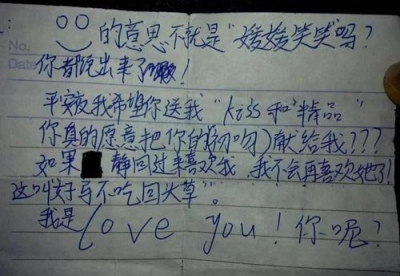 No.
Date
的意思不就是"媛媛笑笑"吗?
你都说出来了啦!
平安夜我希望你送我"kiss和精品"
你真的愿意把你的初吻献给我???
如果 静回过来喜欢我,我不会再喜欢她了!
这叫好马不吃回头草"。
我是 Love you!你呢?